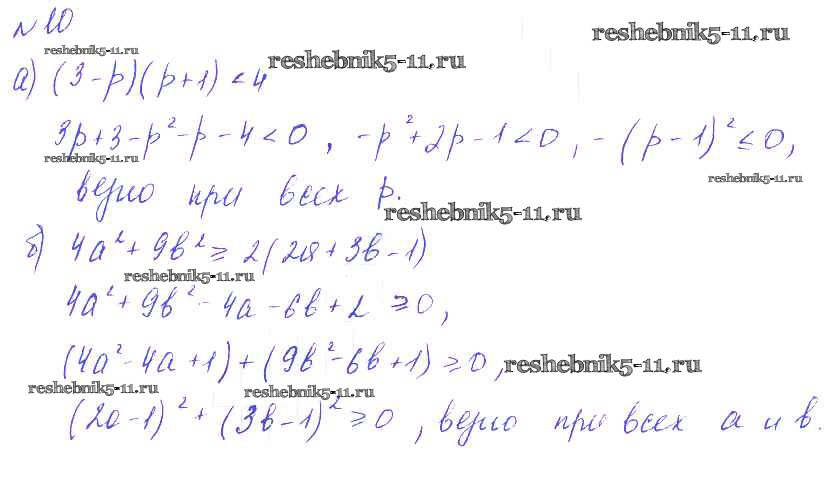 №10
reshebnik5-11.ru
reshebnik5-11.ru
reshebnik5-11.ru
а) (3-p)(p+1) < 4
3p+3-p²-p-4<0, -p²+2p-1<0, -(p-1)²≤0,
reshebnik5-11.ru
reshebnik5-11.ru
верно при всех p.
reshebnik5-11.ru
б) 4a²+9b²≥2(2a+3b-1)
reshebnik5-11.ru
4a²+9b²-4a-6b+2≥0,
(4a²-4a+1)+(9b²-6b+1)≥0,
reshebnik5-11.ru
reshebnik5-11.ru
reshebnik5-11.ru
(2a-1)²+(3b-1)²≥0, верно при всех a и b.